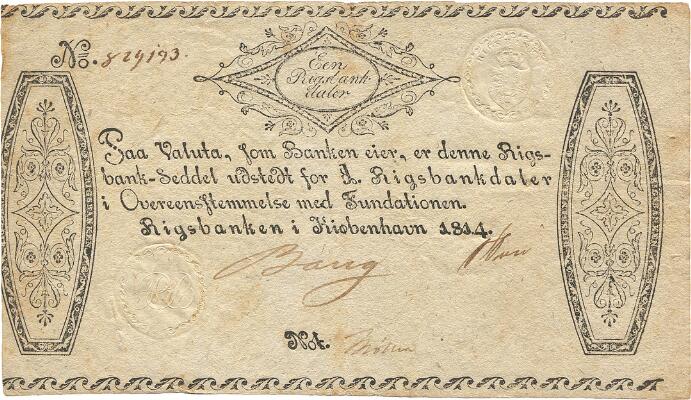 No. 829193.
Een
Rigsbank
daler
Paa Valuta, som Banken eier, er denne Rigs-
bank-Seddel udstedt for 1. Rigsbankdaler
i Overeensstemmelse med Fundationen.
Rigsbanken i Kiøbenhavn 1814.
Bang
Not.